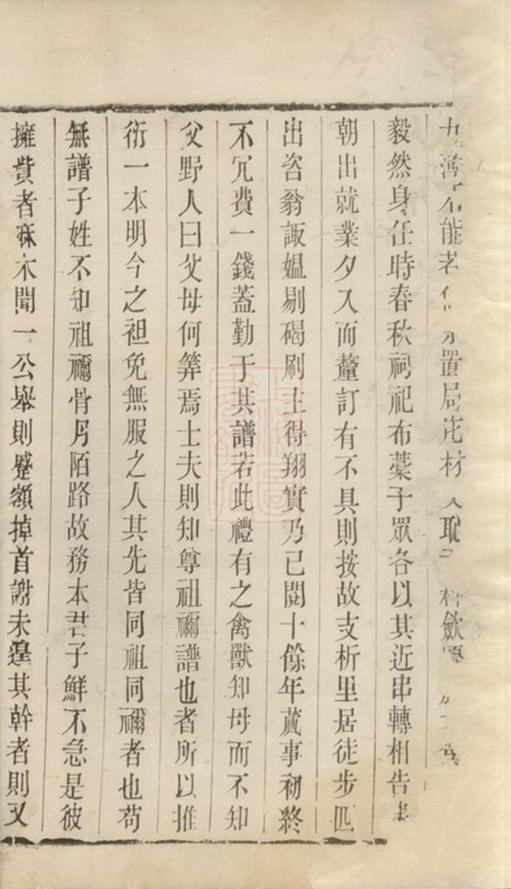 能者 置局庀材
毅然身任時春秋祠祀布藁于眾各以其近串轉相告
朝出就業夕入而釐訂有不具則按故支析里居徒步匹
出咨翁諏媼剔碣刷主得翔實乃已閱十餘年蕆事初終
不冗費一錢蓋勤于共譜若此禮有之禽獸知母而不知
父野人曰父母何筭焉士夫則知尊祖禰譜也者所以推
衍一本明今之袒免無服之人其先皆同祖同禰者也苟
無譜子姓不知祖禰骨月陌路故務本君子鮮不急是彼
擁貲者麻木聞一公舉則蹙額掉首謝未遑其幹者則又